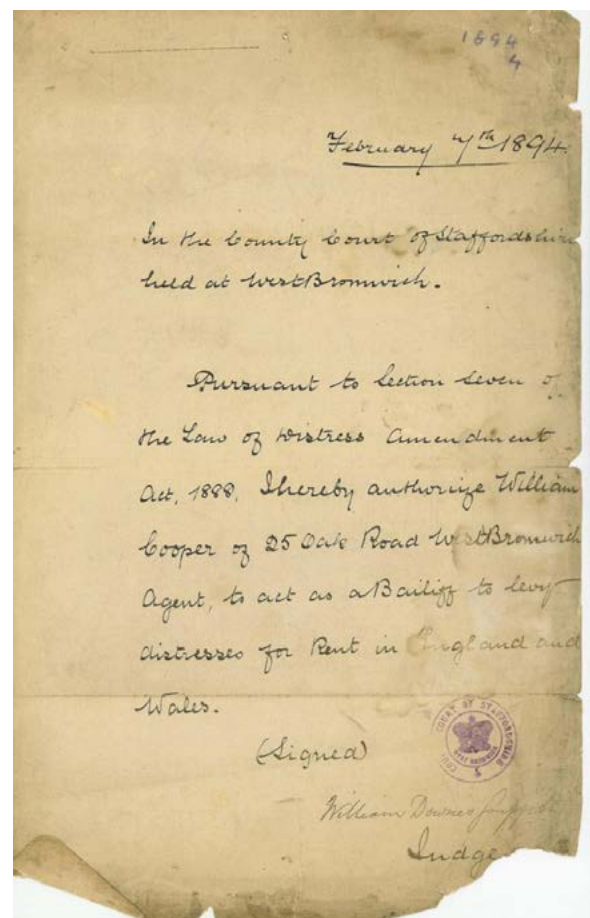 1894
4
February 7th 1894.
In the County Court of Staffordshire
held at West Bromwich.
Pursuant to Section Seven of
the Law of Distress Amendment
Act, 1888, I hereby authorize William
Cooper of 25 Oak Road West Bromwich
Agent, to act as a Bailiff to levy
distresses for Rent in England and
Wales.
COUNTY COURT OF STAFFORDSHIRE
WEST BROMWICH
(Signed)
William Downes
Judge